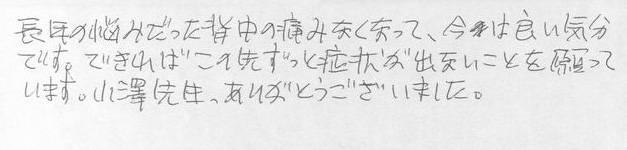 長年の悩みだった背中の痛みなくなって、今は良い気分
です。できればこの先ずっと症状が出ないことを願って
います。小澤先生、ありがとうございました。